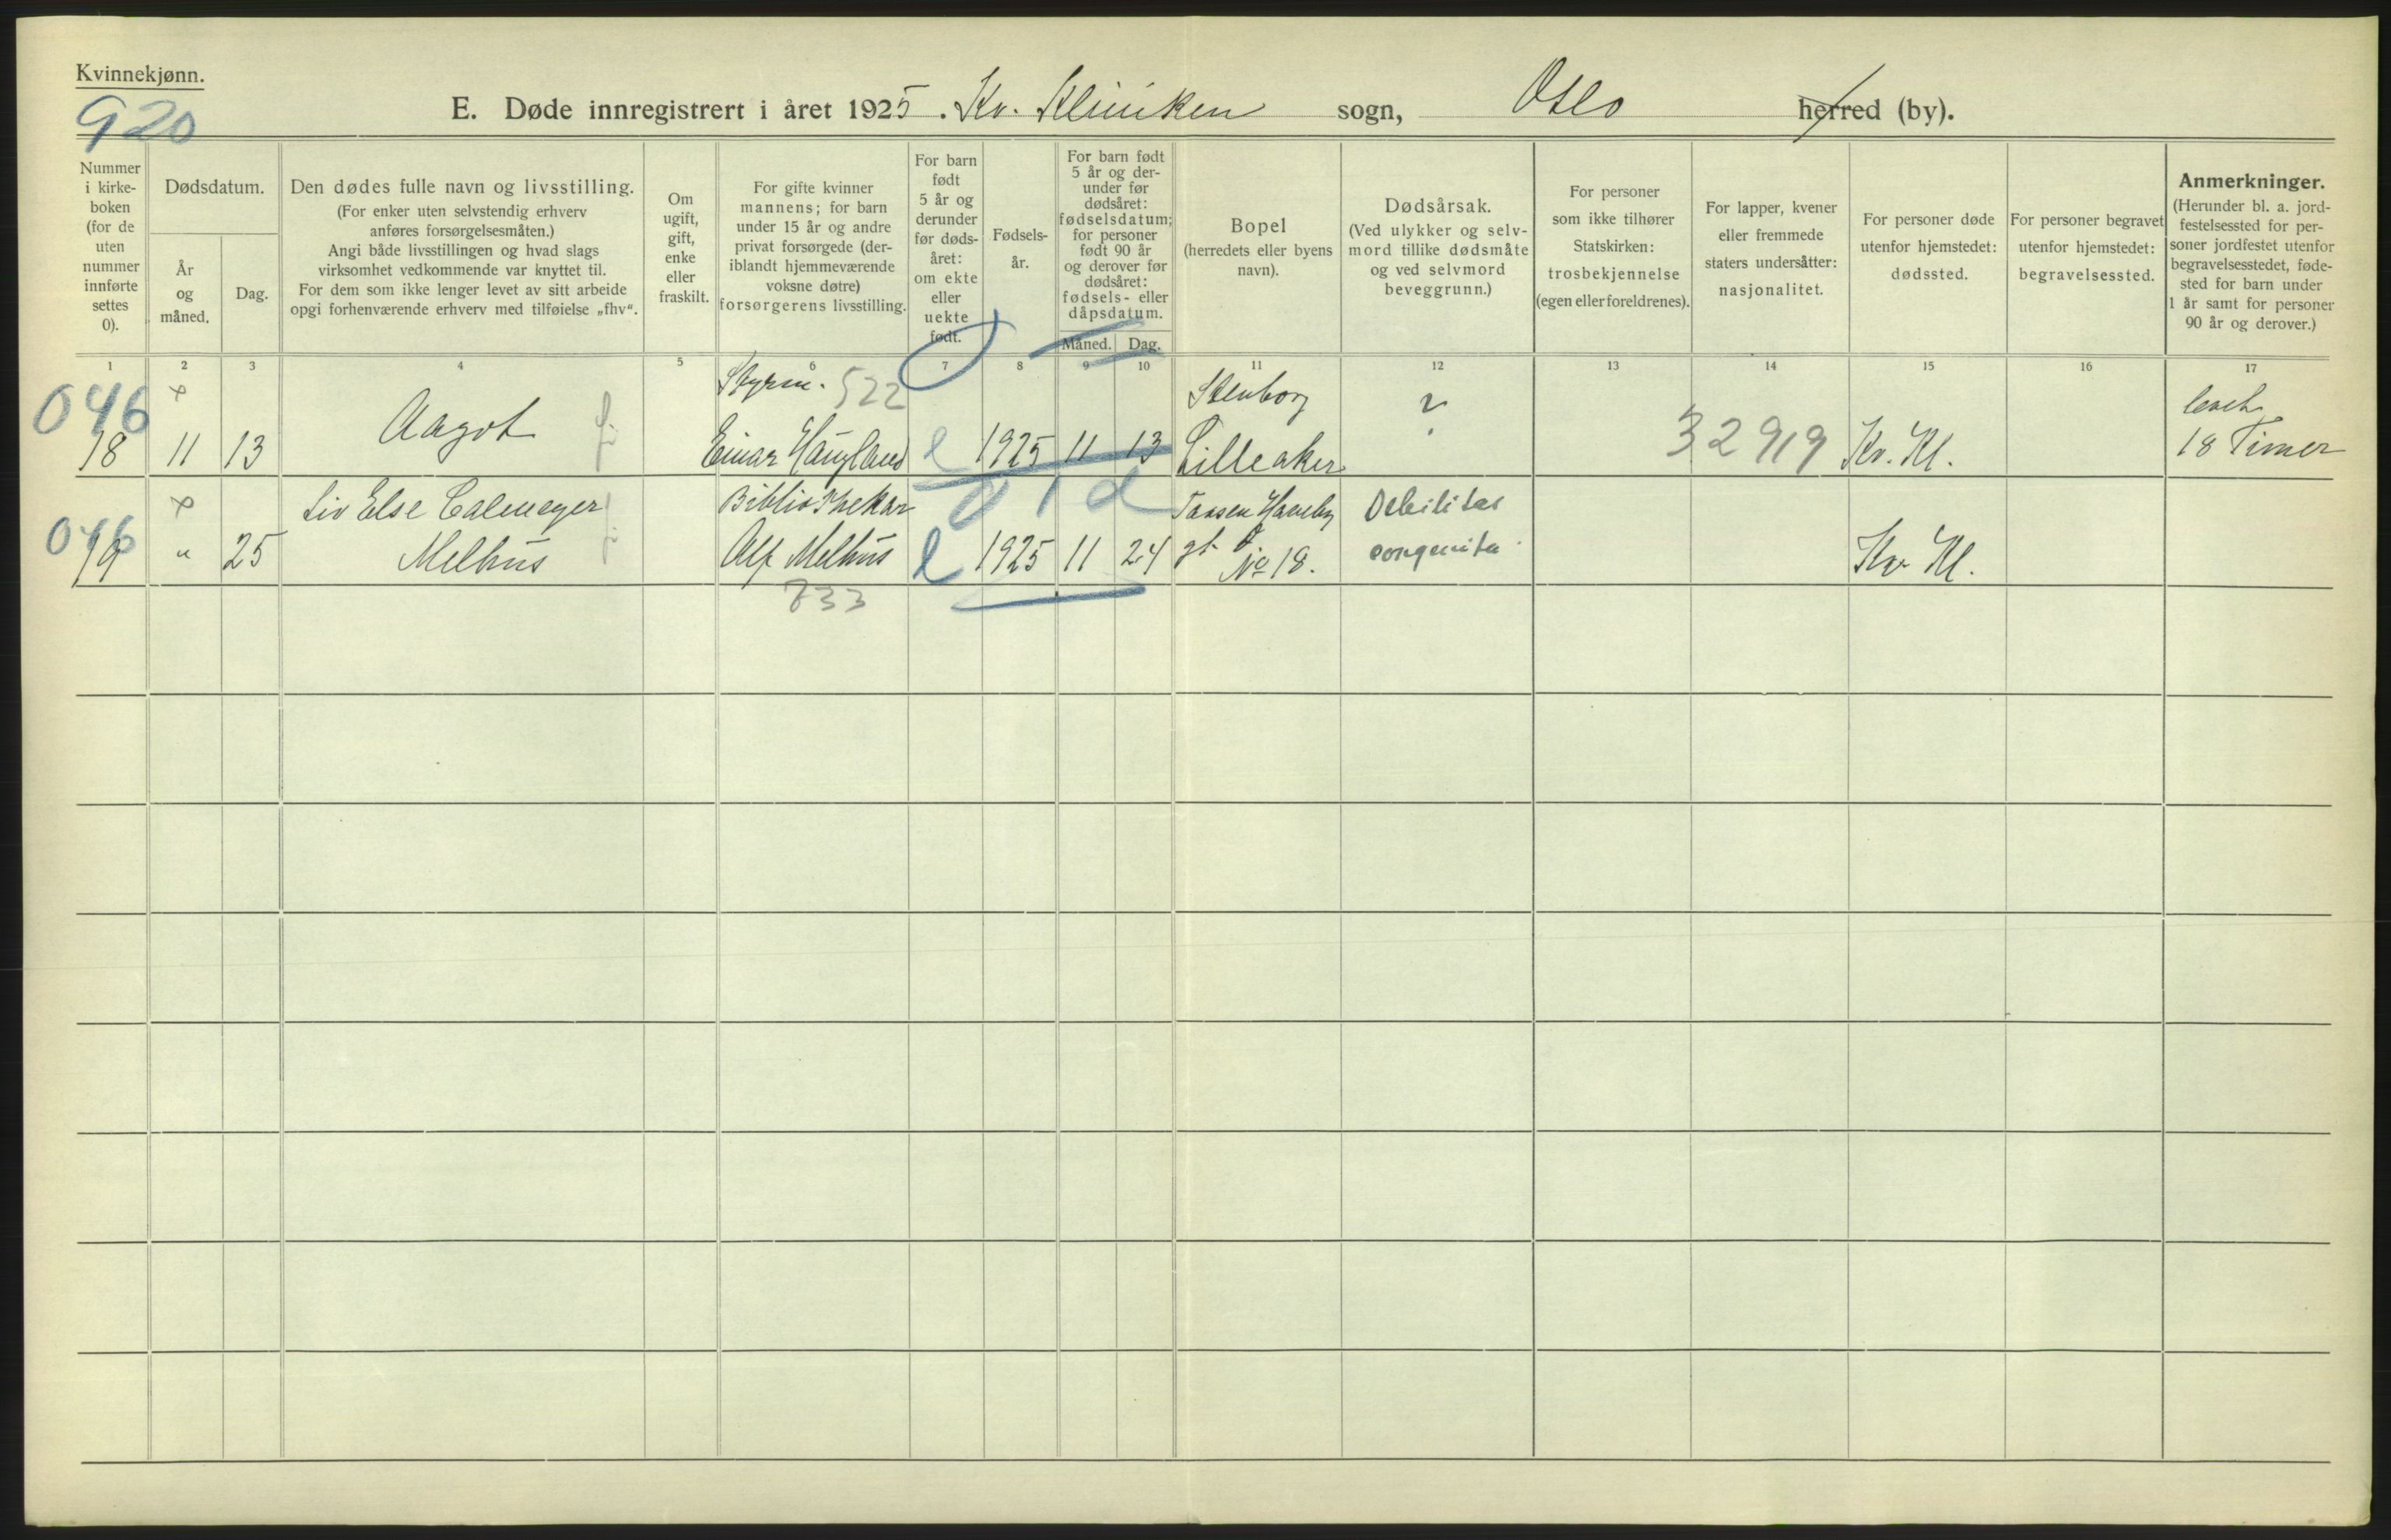 Kvinnekjønn.
920
E. Døde innregistrert i året 1925. Kv. Kliniken sogn, Oslo herred (by).
Nummer
i kirke-
boken
(for de
uten
nummer
innførte
settes
0).
Dødsdatum.
År
og
måned.
Dag.
Den dødes fulle navn og livsstilling.
(For enker uten selvstendig erhverv
anføres forsørgelsesmåten.)
Angi både livsstillingen og hvad slags
virksomhet vedkommende var knyttet til.
For dem som ikke lenger levet av sitt arbeide
opgi forhenværende erhverv med tilføielse „fhv“.
Om
ugift,
gift,
enke
eller
fraskilt.
For gifte kvinner
mannens; for barn
under 15 år og andre
privat forsørgede (der-
iblandt hjemmeværende
voksne døtre)
forsørgerens livsstilling.
For barn
født
5 år og
derunder
før døds-
året:
om ekte
eller
uekte
født.
Fødsels-
år.
For barn født
5 år og der-
under før
dødsåret:
fødselsdatum;
for personer
født 90 år
og derover før
dødsåret:
fødsels- eller
dåpsdatum.
Måned. Dag.
Bopel
(herredets eller byens
navn).
Dødsårsak.
(Ved ulykker og selv-
mord tillike dødsmåte
og ved selvmord
beveggrunn.)
For personer
som ikke tilhører
Statskirken:
trosbekjennelse
(egen eller foreldrenes).
For lapper, kvener
eller fremmede
staters undersåtter:
nasjonalitet.
For personer døde
utenfor hjemstedet:
dødssted.
For personer begravet
utenfor hjemstedet:
begravelsessted.
Anmerkninger.
(Herunder bl. a. jord-
festelsessted for per-
soner jordfestet utenfor
begravelsesstedet, føde-
sted for barn under
1 år samt for personer
90 år og derover.)
1 2 3 4 5 6 7 8 9 10 11 12 13 14 15 16 17
046 Styrm. 522 Stenborg ? levet
18 11 13 Aagot Einar Haugland e 1925 11 13 Lilleaker 32919 Kv. Kl. 18 Timer
046 Liv Else Calmeyer Bibliothekar Taasen Haveby Debilitas
19 " 25 Melhus Alf Melhus e 1925 11 24 gt. No 18. congenita Kv. Kl.
733